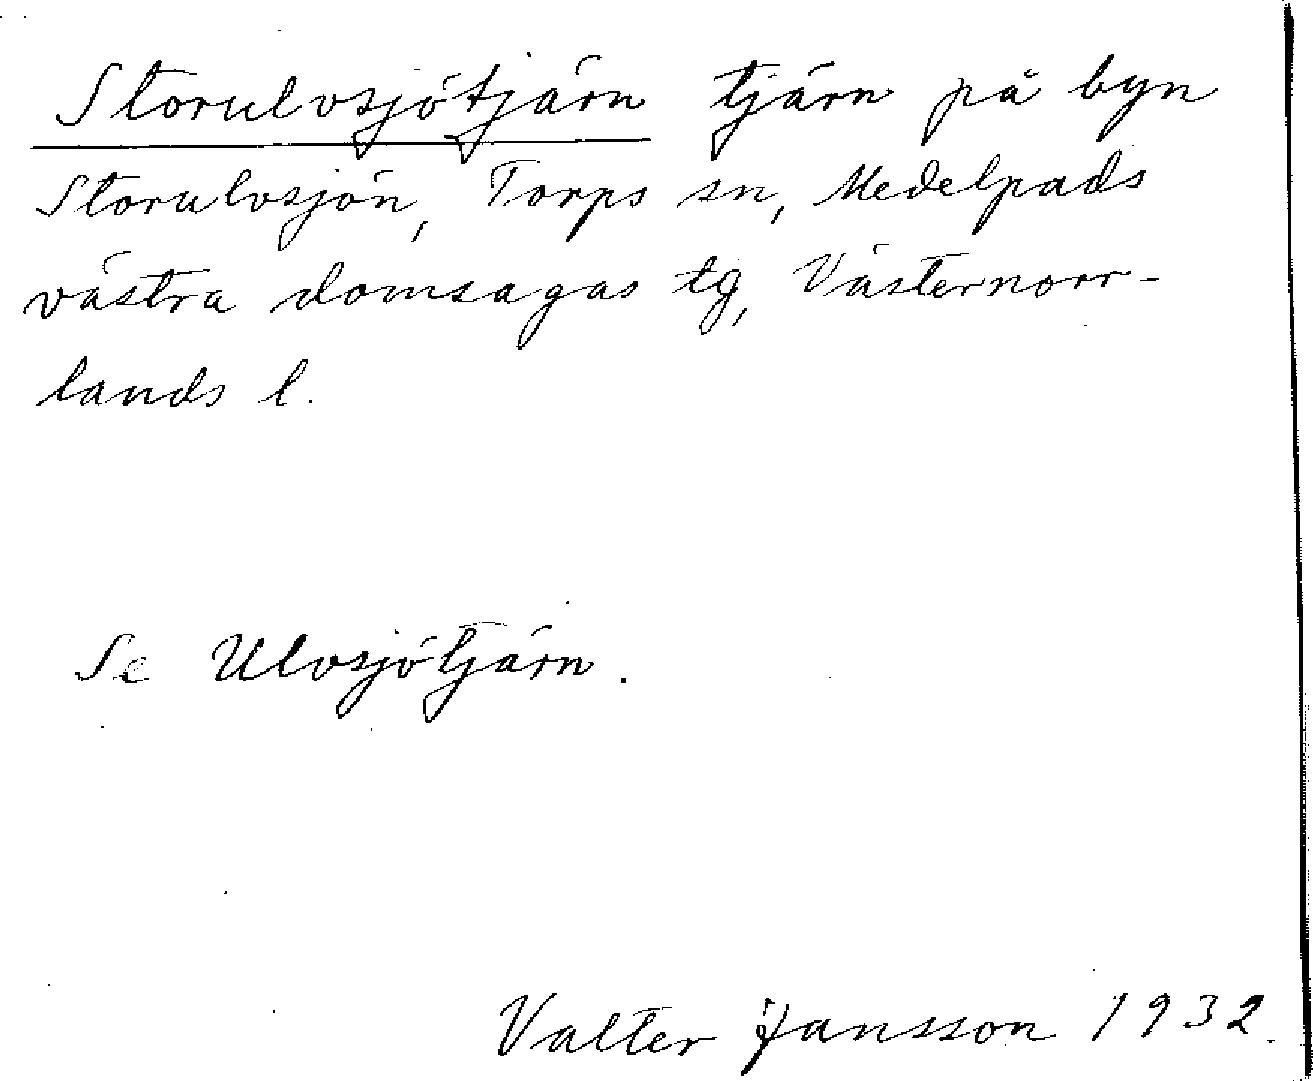 Storulvsjötjärn tjärn på byn
Storulvsjön, Torps sn, Medelpads
västra domsagas tg, Västernorr-
lands l.
Se Ulvsjötjärn.
Valter Jansson 1932.